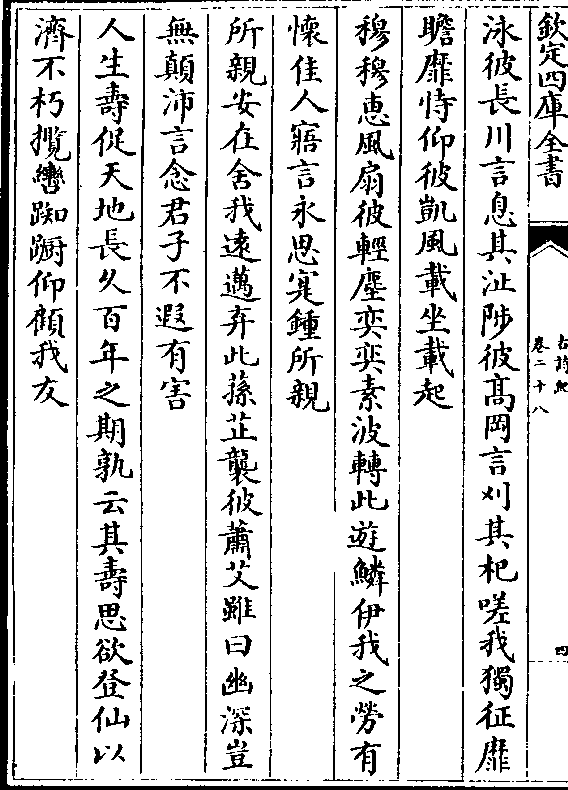 欽定四庫全書
古詩紀
卷二十八
四
泳彼長川言息其沚陟彼髙岡言刈其杞嗟我獨征靡
瞻靡恃仰彼凱風載坐載起
穆穆恵風扇彼輕塵奕奕素波轉此遊鱗伊我之勞有
懐佳人寤言永思寔鍾所親
所親安在舍我逺邁弃此蓀芷襲彼蕭艾雖曰幽深豈
無顛沛言念君子不遐有害
人生壽促天地長久百年之期孰云其壽思欲登仙以
濟不朽攬轡踟蹰仰顧我友